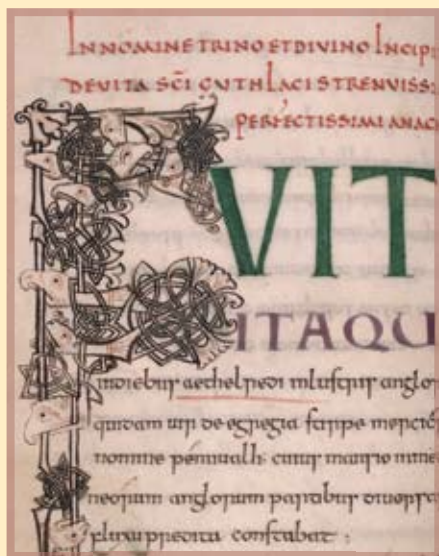 IN NOMINE TRINO ET DIVINO INCIP
DE VITA SCI GUTHLACI STRENUISS
PERFECTISSIMI ANAC
FVIT
ITAQU
in diebus aethelredi inlustris anglo
quidam uir de egregia stirpe mercio
nomine penuualh: cuius mansio in me
neorum anglorum partibus diuersa
fluxu predita constabat :